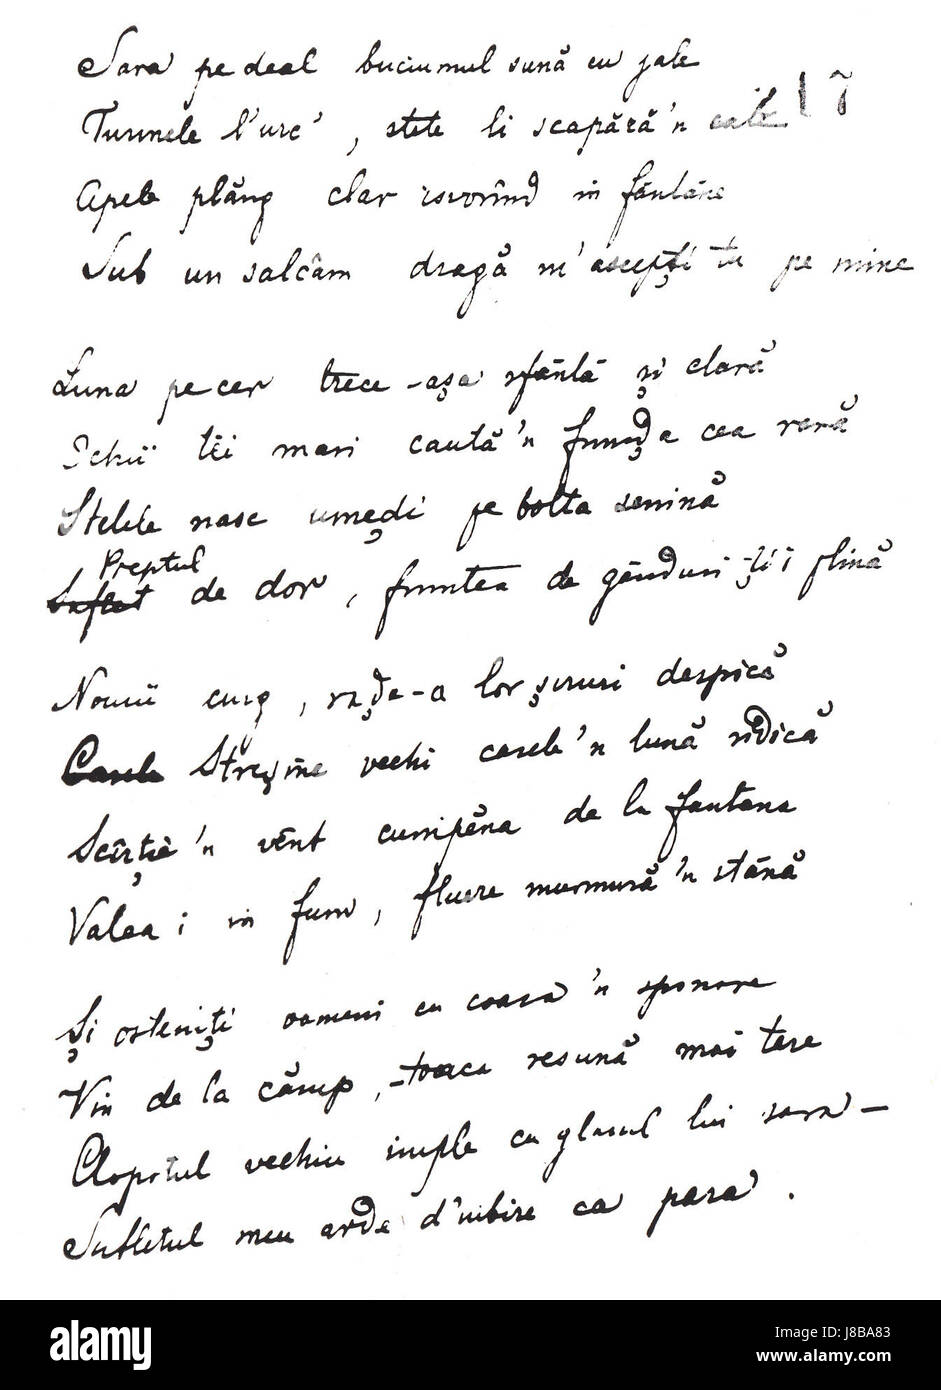 Sara pe deal buciumul sună cu jale
Turmele l'urc', stele li scapără'n cale 17
Apele plâng clar isvorînd in fântâne
Sub un salcâm dragă m'ascepți tu pe mine
Luna pe cer trece-așa sfântă și clară
Ochii tĕi mari caută'n frunḑa cea rară
Stelele nasc umeḑi pe bolta senină
Preptul
Suflet de dor, fruntea de gânduri ți-i plină
Nourii curg, raḑe-a lor șiruri despică
Casele Streșine vechi casele'n lună ridică
Scîrțîe'n vênt cumpăna de la fantana
Valea i in fum, fluere murmură'n stână
Și osteniți oameni cu coasa'n spinare
Vin de la câmp, -toaca resună mai tare
Clopotul vechiu imple cu glasul lui sara -
Sufletul meu arde d'iubire ca para.
alamy
Image ID: J8BA83
www.alamy.com